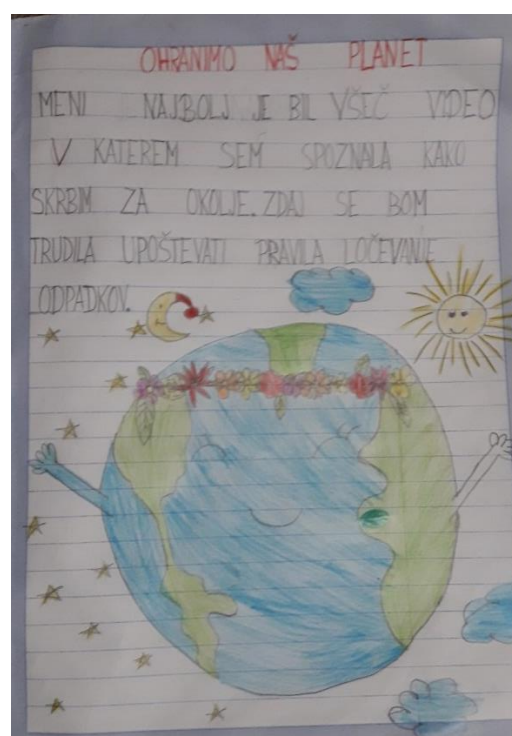 OHRANIMO NAŠ PLANET
MENI NAJBOLJ JE BIL VŠEČ VIDEO
V KATEREM SEM SPOZNALA KAKO
SKRBIM ZA OKOLJE. ZDAJ SE BOM
TRUDILA UPOŠTEVATI PRAVILA LOČEVANJE
ODPADKOV.